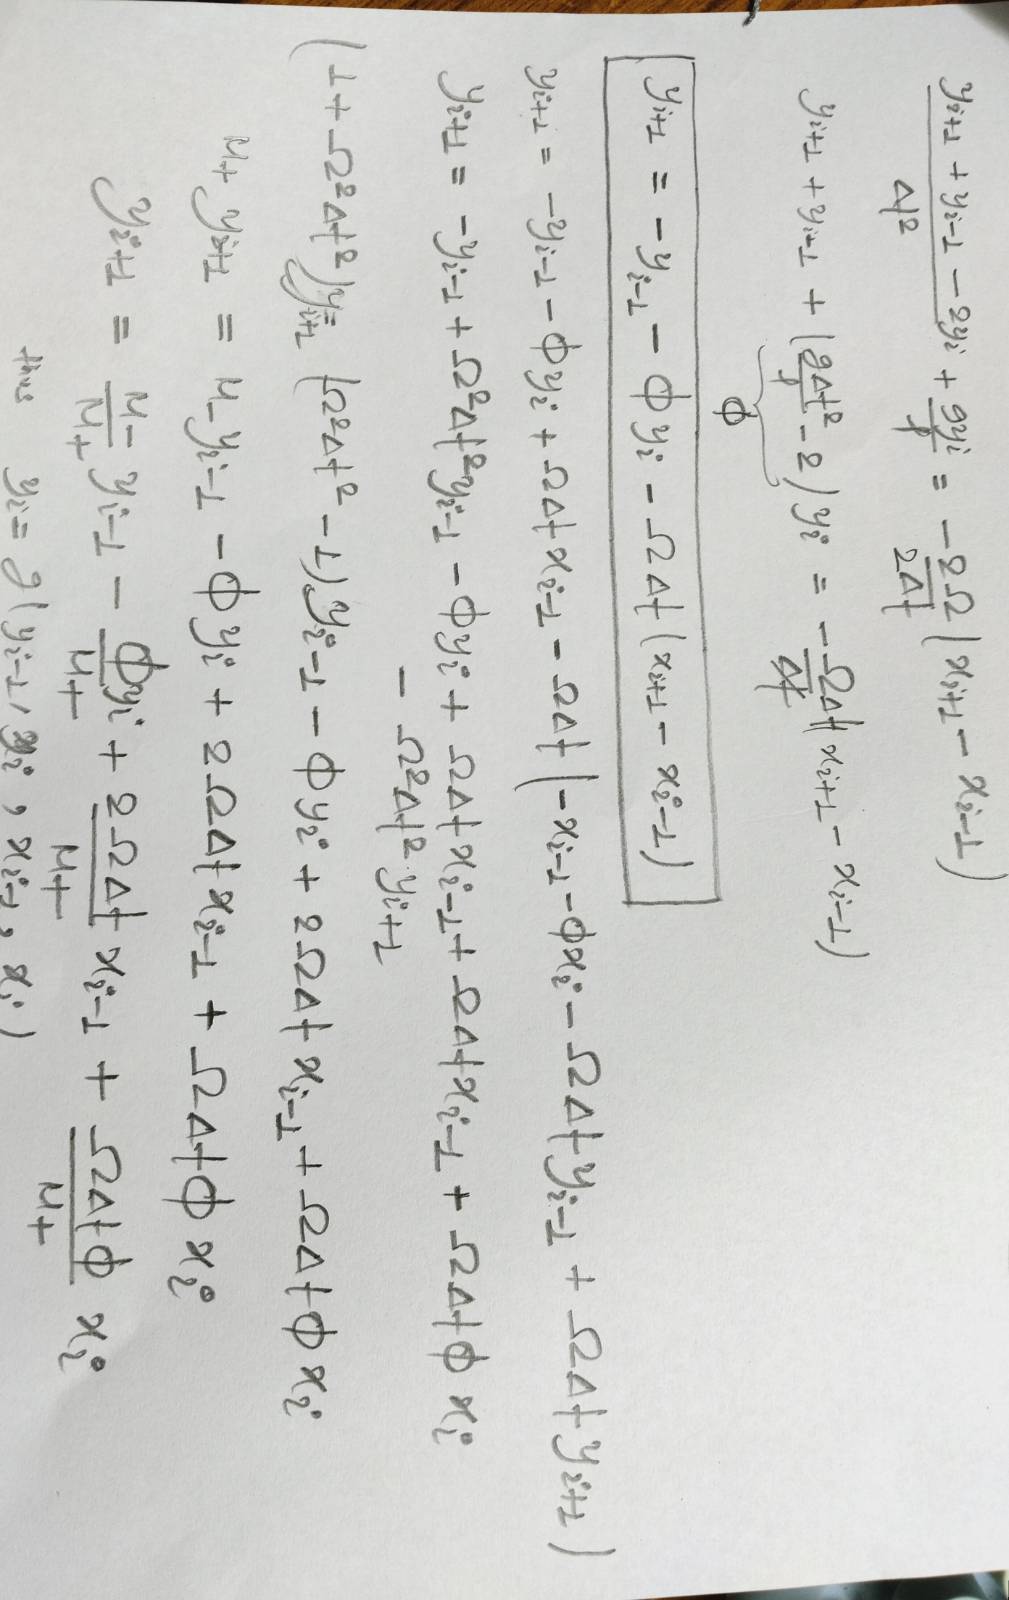 (y_{i+1} + y_{i-1} - 2y_i)/Δt² + g y_i/ℓ = -2Ω/2Δt (x_{i+1} - x_{i-1})
y_{i+1} + y_{i-1} + (gΔt²/ℓ - 2) y_i = -ΩΔt (x_{i+1} - x_{i-1})
ϕ
y_{i+1} = -y_{i-1} - ϕ y_i - ΩΔt (x_{i+1} - x_{i-1})
y_{i+1} = -y_{i-1} - ϕ y_i + ΩΔt x_{i-1} - ΩΔt (-x_{i-1} - ϕ x_i - ΩΔt y_{i-1} + ΩΔt y_{i+1})
y_{i+1} = -y_{i-1} + Ω²Δt² y_{i-1} - ϕ y_i + ΩΔt x_{i-1} + ΩΔt x_{i-1} + ΩΔt ϕ x_i
- Ω²Δt² y_{i+1}
(1 + Ω²Δt²) y_{i+1} = (Ω²Δt² - 1) y_{i-1} - ϕ y_i + 2ΩΔt x_{i-1} + ΩΔt ϕ x_i
μ₊ y_{i+1} = μ₋ y_{i-1} - ϕ y_i + 2ΩΔt x_{i-1} + ΩΔt ϕ x_i
y_{i+1} = μ₋/μ₊ y_{i-1} - ϕ y_i/μ₊ + 2ΩΔt/μ₊ x_{i-1} + ΩΔt ϕ/μ₊ x_i
thus y_i = g(y_{i-1}, y_i, x_{i-1}, x_i)